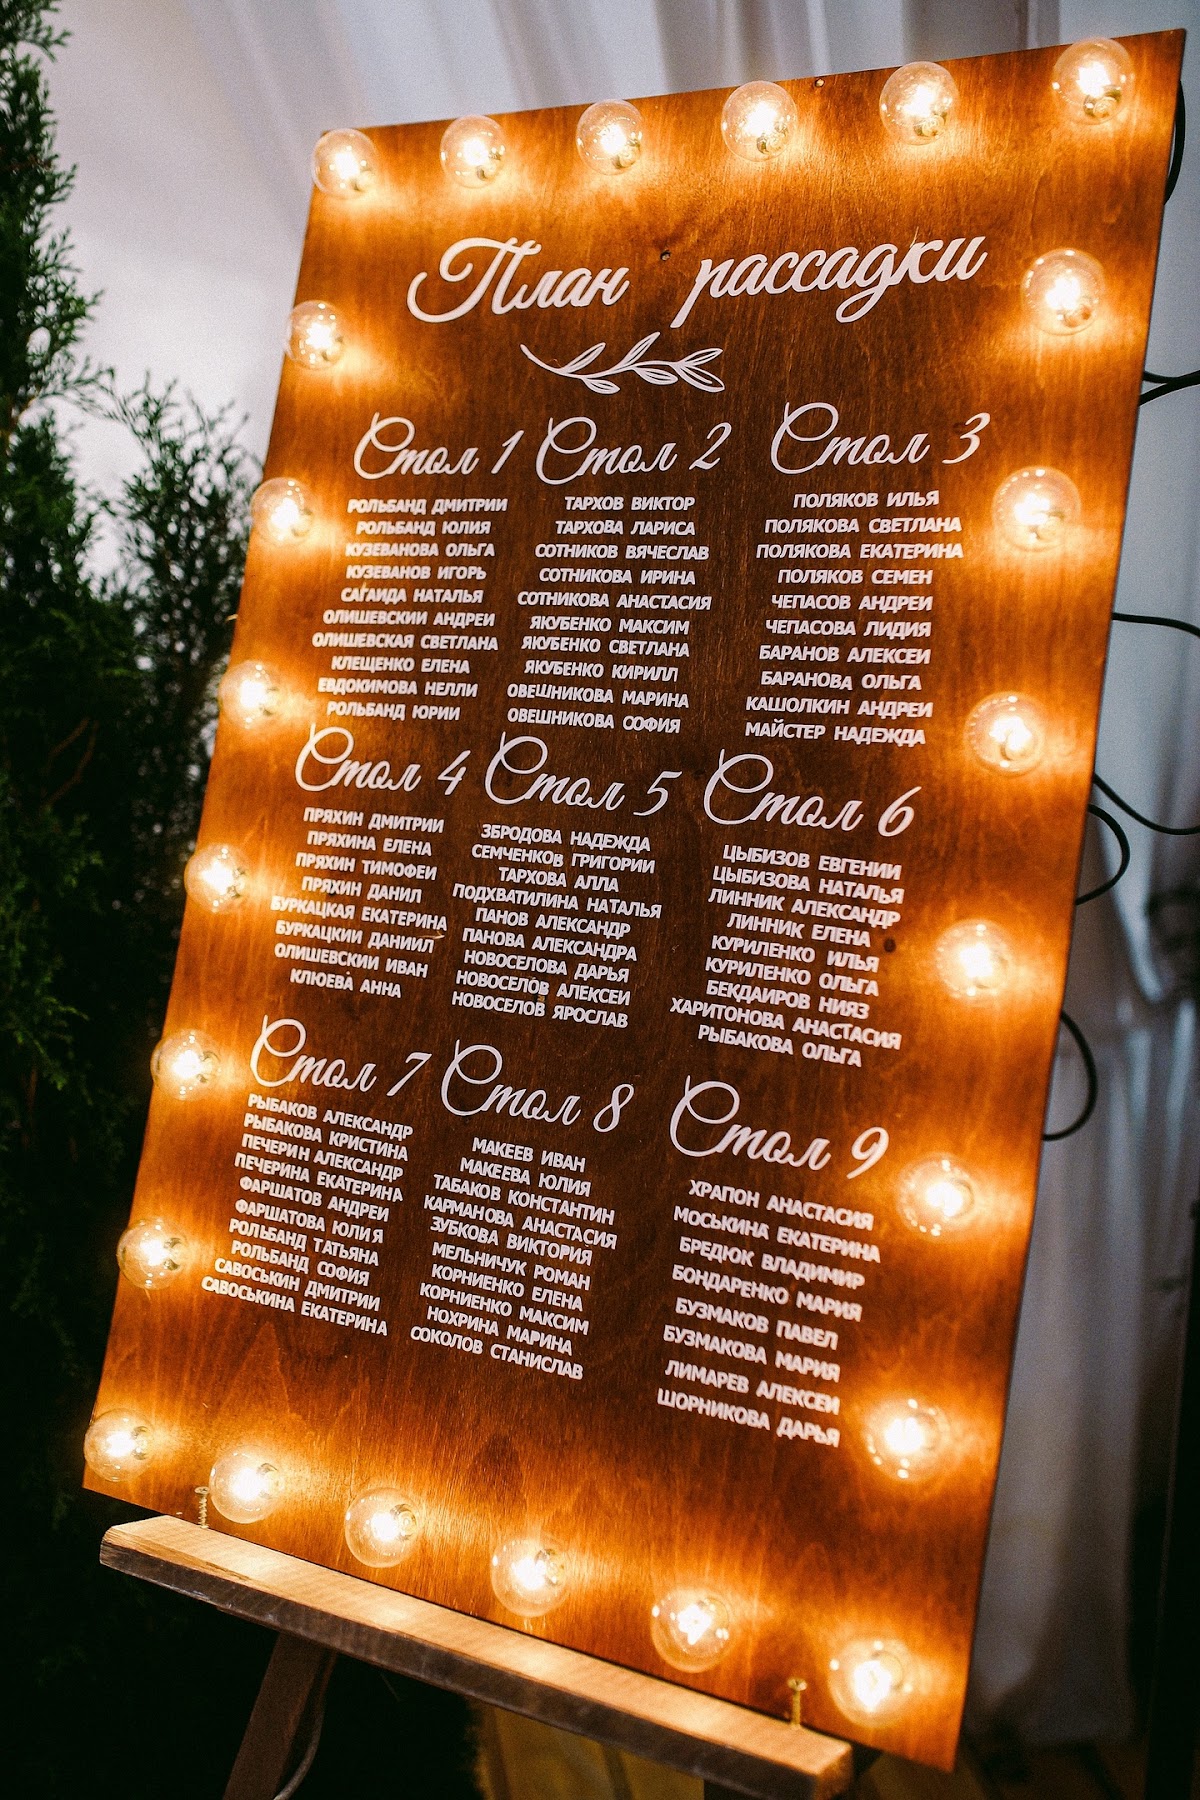 План рассадки
Стол 1
РОЛЬБАНД ДМИТРИИ
РОЛЬБАНД ЮЛИЯ
КУЗЕВАНОВА ОЛЬГА
КУЗЕВАНОВ ИГОРЬ
САГАИДА НАТАЛЬЯ
ОЛИШЕВСКИИ АНДРЕИ
ОЛИШЕВСКАЯ СВЕТЛАНА
КЛЕЩЕНКО ЕЛЕНА
ЕВДОКИМОВА НЕЛЛИ
РОЛЬБАНД ЮРИИ
Стол 2
ТАРХОВ ВИКТОР
ТАРХОВА ЛАРИСА
СОТНИКОВ ВЯЧЕСЛАВ
СОТНИКОВА ИРИНА
СОТНИКОВА АНАСТАСИЯ
ЯКУБЕНКО МАКСИМ
ЯКУБЕНКО СВЕТЛАНА
ЯКУБЕНКО КИРИЛЛ
ОВЕШНИКОВА МАРИНА
ОВЕШНИКОВА СОФИЯ
Стол 3
ПОЛЯКОВ ИЛЬЯ
ПОЛЯКОВА СВЕТЛАНА
ПОЛЯКОВА ЕКАТЕРИНА
ПОЛЯКОВ СЕМЕН
ЧЕПАСОВ АНДРЕИ
ЧЕПАСОВА ЛИДИЯ
БАРАНОВ АЛЕКСЕИ
БАРАНОВА ОЛЬГА
КАШОЛКИН АНДРЕИ
МАЙСТЕР НАДЕЖДА
Стол 4
ПРЯХИН ДМИТРИИ
ПРЯХИНА ЕЛЕНА
ПРЯХИН ТИМОФЕИ
ПРЯХИН ДАНИЛ
БУРКАЦКАЯ ЕКАТЕРИНА
БУРКАЦКИИ ДАНИИЛ
ОЛИШЕВСКИИ ИВАН
КЛЮЕВА АННА
Стол 5
ЗБРОДОВА НАДЕЖДА
СЕМЧЕНКОВ ГРИГОРИИ
ТАРХОВА АЛЛА
ПОДХВАТИЛИНА НАТАЛЬЯ
ПАНОВ АЛЕКСАНДР
ПАНОВА АЛЕКСАНДРА
НОВОСЕЛОВА ДАРЬЯ
НОВОСЕЛОВ АЛЕКСЕИ
НОВОСЕЛОВ ЯРОСЛАВ
Стол 6
ЦЫБИЗОВ ЕВГЕНИИ
ЦЫБИЗОВА НАТАЛЬЯ
ЛИННИК АЛЕКСАНДР
ЛИННИК ЕЛЕНА
КУРИЛЕНКО ИЛЬЯ
КУРИЛЕНКО ОЛЬГА
БЕКДАИРОВ НИЯЗ
ХАРИТОНОВА АНАСТАСИЯ
РЫБАКОВА ОЛЬГА
Стол 7
РЫБАКОВ АЛЕКСАНДР
РЫБАКОВА КРИСТИНА
ПЕЧЕРИН АЛЕКСАНДР
ПЕЧЕРИНА ЕКАТЕРИНА
ФАРШАТОВ АНДРЕИ
ФАРШАТОВА ЮЛИЯ
РОЛЬБАНД ТАТЬЯНА
РОЛЬБАНД СОФИЯ
САВОСЬКИН ДМИТРИИ
САВОСЬКИНА ЕКАТЕРИНА
Стол 8
МАКЕЕВ ИВАН
МАКЕЕВА ЮЛИЯ
ТАБАКОВ КОНСТАНТИН
КАРМАНОВА АНАСТАСИЯ
ЗУБКОВА ВИКТОРИЯ
МЕЛЬНИЧУК РОМАН
КОРНИЕНКО ЕЛЕНА
КОРНИЕНКО МАКСИМ
НОХРИНА МАРИНА
СОКОЛОВ СТАНИСЛАВ
Стол 9
ХРАПОН АНАСТАСИЯ
МОСЬКИНА ЕКАТЕРИНА
БРЕДЮК ВЛАДИМИР
БОНДАРЕНКО МАРИЯ
БУЗМАКОВ ПАВЕЛ
БУЗМАКОВА МАРИЯ
ЛИМАРЕВ АЛЕКСЕИ
ШОРНИКОВА ДАРЬЯ